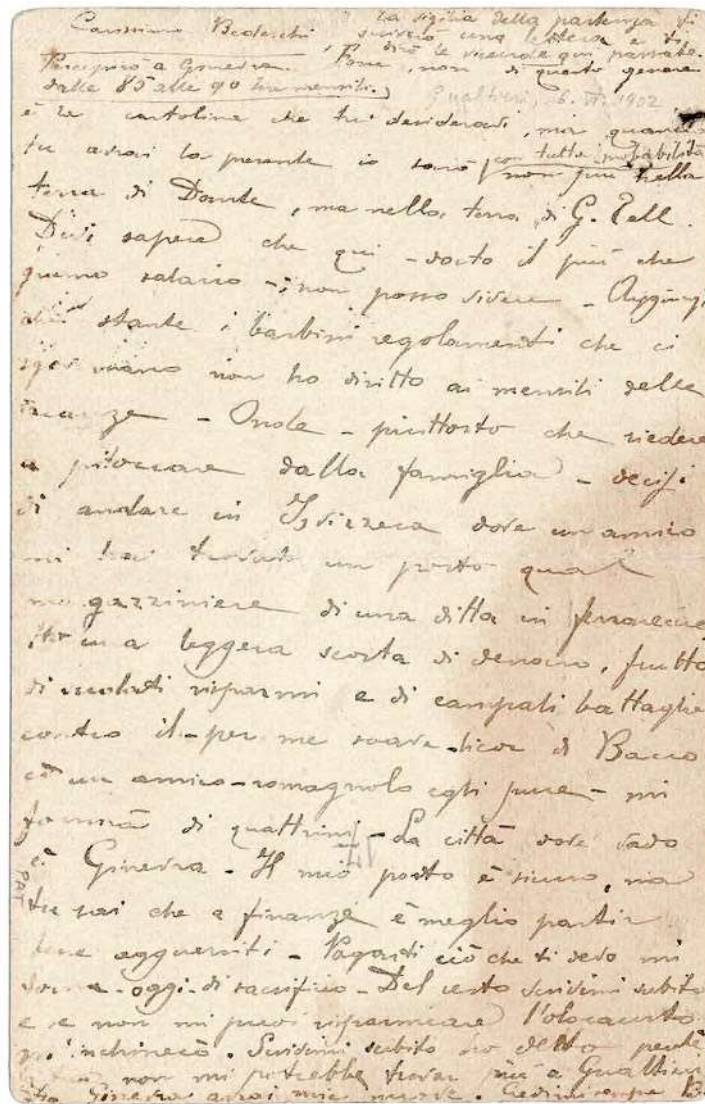 Carissimo Bedeschi
La vigilia della partenza ti
scriverò una lettera e ti
dirò le vicende qui passate.
Percepirò a Ginevra
dalle 85 alle 90 lire mensili.
Forse, non di questo genere
Gualtieri, 26. VI. 1902
è la cartolina che tu desideravi, ma quando
tu avrai la presente io sarò con tutta probabilità
non più nella
terra di Dante, ma nella terra di G. Tell.
Devi sapere che qui - dato il più che
salario - non posso vivere - Aggiungi
che stante i barbini regolamenti che ci
non ho diritto ai mensili delle
vacanze - Onde - piuttosto che riedere
a pitoccare dalla famiglia - decisi
di andare in Isvizzera dove un amico
mi ha trovato un posto qual
magazziniere di una ditta in ferrarecce
leggera scorta di denaro, frutto
di risparmi e di campali battaglie
contro il - per me soave - licor di Bacco
un amico - romagnolo egli pure - mi
fornirà di quattrini - La città dove vado
è Ginevra - Il mio posto è sicuro, ma
tu sai che a finanze è meglio partir
bene agguerriti - Pagarti ciò che ti devo mi
oggi - di sacrificio - Del resto scrivimi subito
e se non mi puoi risparmiare l'olocausto
m'inchinerò. Scrivimi subito ho detto perché
non mi potrebbe trovar più a Gualtieri
Ginevra avrai mie nuove. Credimi sempre B.